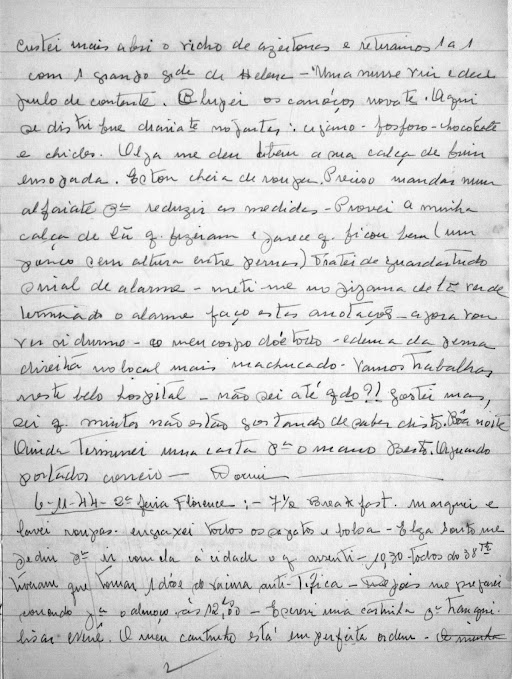 custei mais abri o vidro de azeitonas e retiramos 1 a 1
com 1 grampo gde de Helena – Uma nurse viu e deu
pulo de contente. os canecos novate. Aqui
se distribue diariate no jantar: cigarro – fosforo – chocolate
e chicles. Elza me deu a sua calça de brim
ensopada. Estou cheia de roupa. Preciso mandar num
alfaiate pra reduzir as medidas – Provei a minha
calça de lã q. fizeram e parece q. ficou bem (um
pouco sem altura entre pernas) Tratei de guardar tudo
sinal de alarme – meti-me no pijama de lã verde
terminado o alarme faço estas anotações – agora vou
ver si durmo – o meu corpo dóe todo – edema da perna
direita no local mais machucado – Vamos trabalhar
neste belo hospital – não sei até qdo?! gostei mas,
sei q. muitos não estão gostando de saber disto. Bôa noite
Ainda terminei uma carta pra o mano Berto. Aguardo
portador correio – Dormi
6-11-44 – 2ª feira Florence: – 7½ Breakfast. Marquei e
lavei roupas – engraxei todos os sapatos e bolsa – Elza me
pediu pra ir com ela á cidade o q. aceitei – 10,30 todos do 38TH
tiveram que tomar 1 dóse de vacina anti-tifica – depois me preparei
correndo pra o almoço às 12,00 – Escrevi uma cartinha pra tranqui-
lisar. O meu cantinho está em perfeita ordem – A minha
2